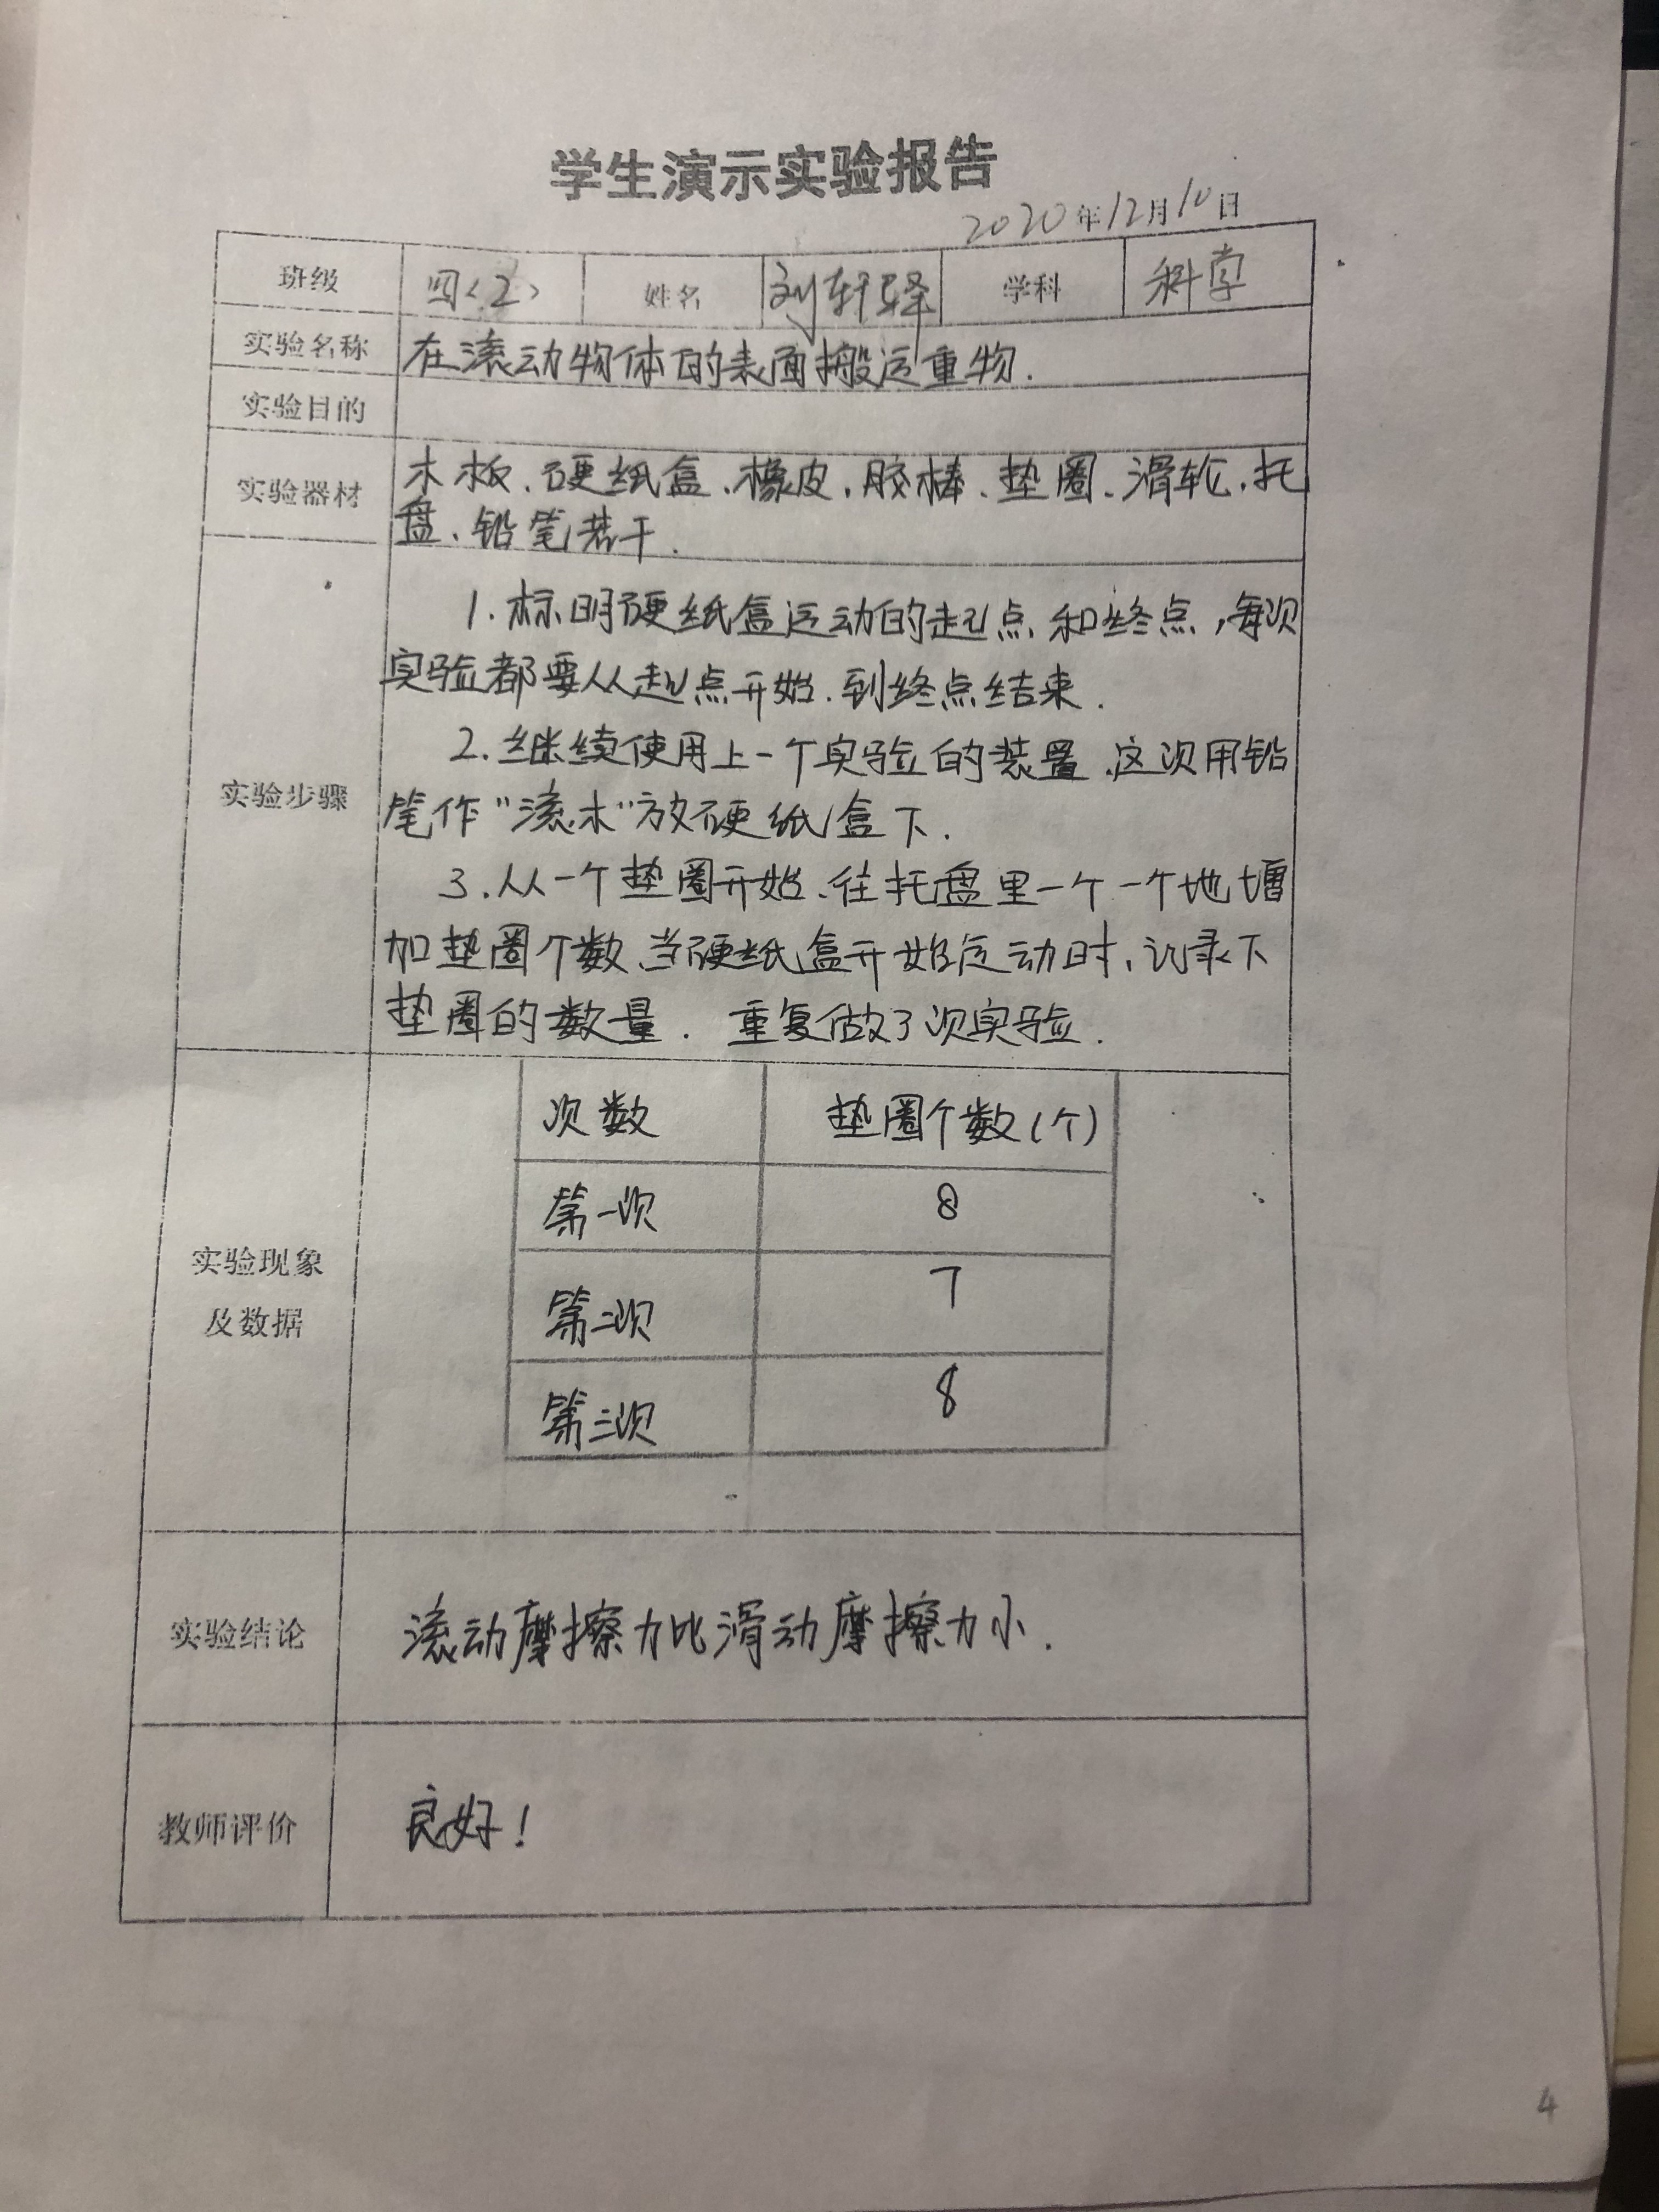 学生演示实验报告
2020年12月10日
班级 四<2> 姓名 刘轩驿 学科 科学
实验名称 在滚动物体的表面搬运重物.
实验目的
实验器材 木板、硬纸盒、橡皮、胶棒、垫圈、滑轮、托
盘、铅笔若干.
实验步骤
1.标明硬纸盒运动的起点和终点,每次
实验都要从起点开始.到终点结束.
2.继续使用上一个实验的装置.这次用铅
笔作"滚木"放硬纸盒下.
3.从一个垫圈开始、往托盘里一个一个地增
加垫圈个数、当硬纸盒开始运动时,记录下
垫圈的数量. 重复做3次实验.
实验现象
及数据
次数 垫圈个数(个)
第一次 8
第二次 7
第三次 8
实验结论 滚动摩擦力比滑动摩擦力小.
教师评价 良好!
4